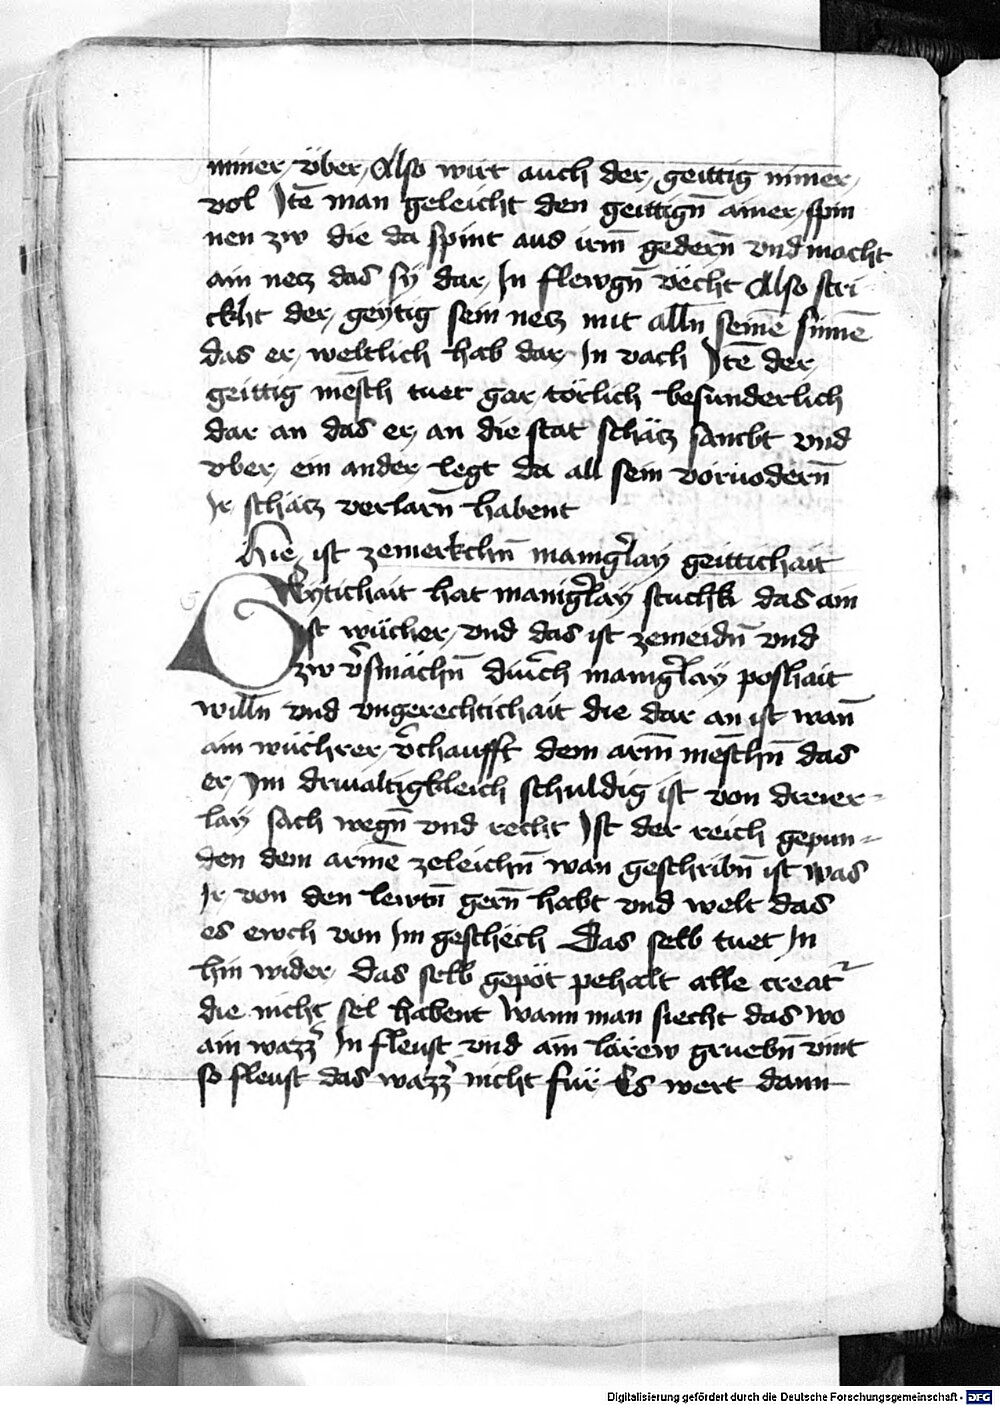 nimer vber Also wirt auch der geittig nimer
vol Itē man geleicht den geittign̄ ainer spin
nen zw die da spint aus irm̄ gedern̄ vnd macht
ain necz das sy dar In flewgn̄ vëcht Also stri
ckht der geytig sein necz mit alln̄ seinē sinnē
das er weltlich hab dar In vach Itē der
geittig mēsch tuet gar törlich besunderlich
dar an das er an die stat schäcz sambt vnd
vber ein ander legt da all sein voruodern̄
Ir schäcz verlarn̄ habent
Hie ist zemerkchn̄ manig̉lay geittichait
Geytichait hat manig̉lay stuchk das ain
ist wücher vnd das ist zemeidn̄ vnd
zw v̉smächn̄ durch manig̉lay poshait
willn̄ vnd vngerechtichait die dar an ist wan̄
ain wüchrer v̉chaufft dem arm̄ mēschn̄ das
er Im drivaltigkleich schuldig ist von dreier-
lay sach wegn̄ vnd recht Ist der reich gepun-
den dem armē zeleichn̄ wan geschribn̄ ist was
Ir von den lewtn̄ gern̄ habt vnd welt das
es ewch von Im geschëch Das selb tuet In
hin wider das selb gepot pehalt alle creat̉
die nicht sel habent Wann man siecht das wo
ain wazz̉ In fleust vnd ain lärew gruebn̄ vint
so fleust das wazz̉ nicht für Es wert dann
Digitalisierung gefördert durch die Deutsche Forschungsgemeinschaft - DFG